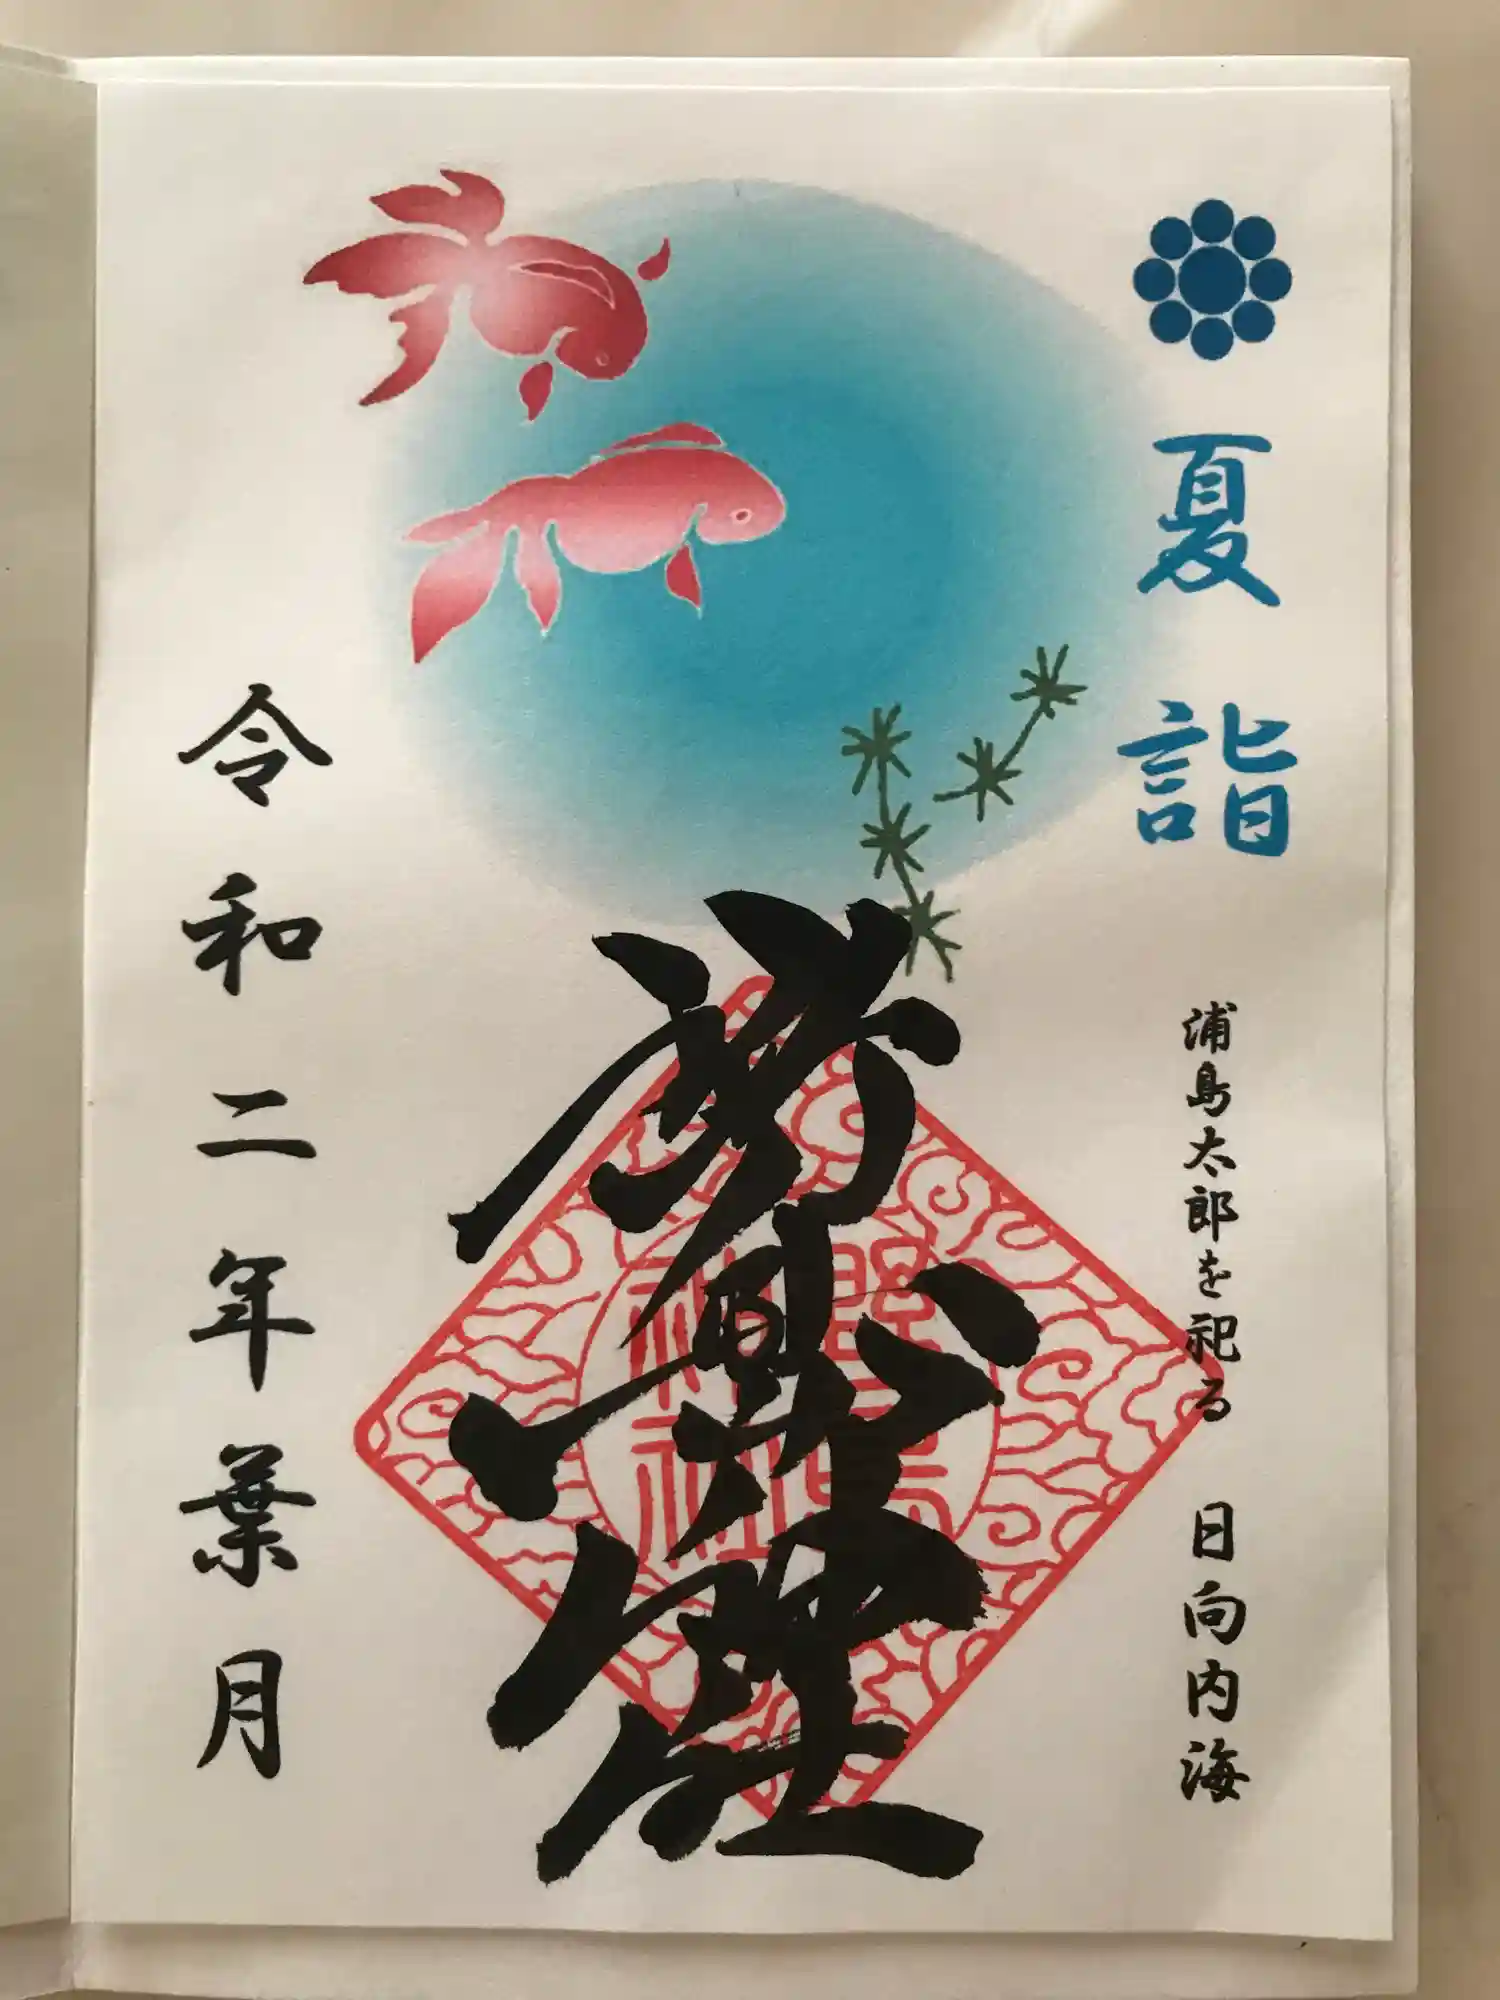 夏詣
浦島太郎を祀る 日向内海
野島
神社
令和二年葉月